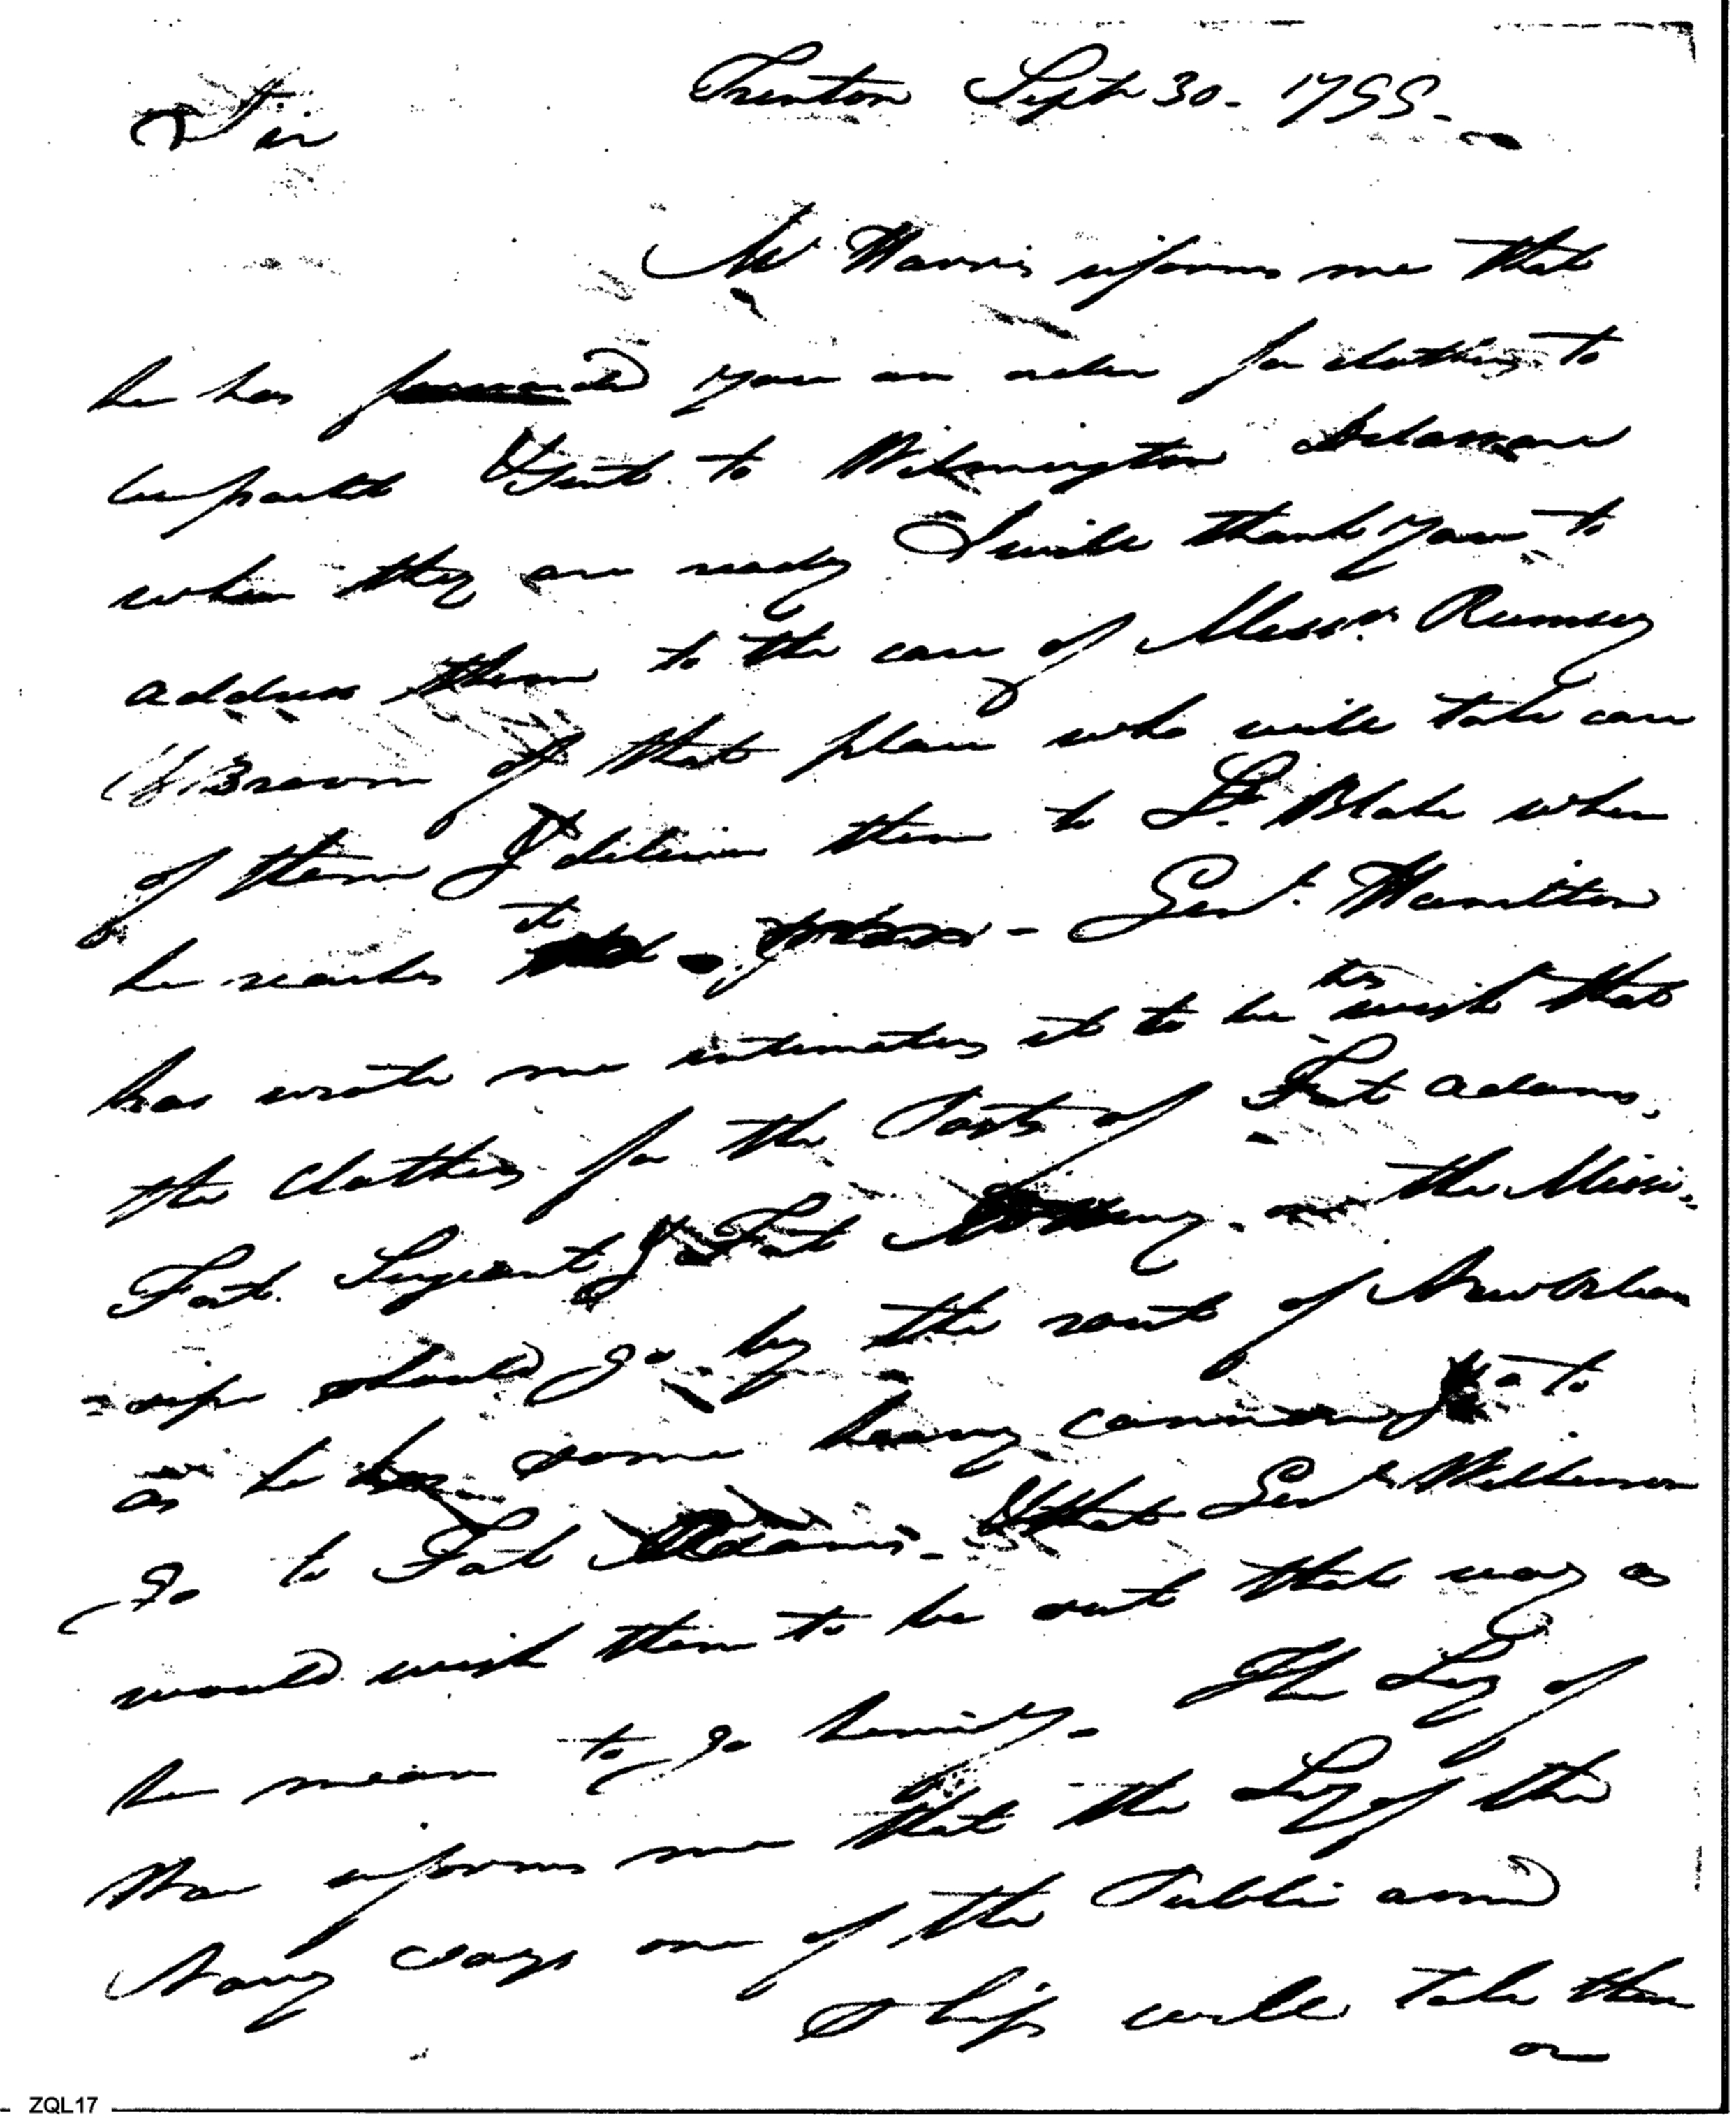 Trenton Sept 30 - 1799 -
Sir
Mr Harris informs me that
he has forwarded you an order for clothing to
be packd & sent to Wilmington Delaware
when they are ready I will thank you to
address them to the care of Messrs. Rumsey
& Broom of that place who will take care
of them & deliver them to Lt. Blake when
he reaches to - Genl. Hamilton
has wrote me intimating it to be his wish that
the clothing for the Posts of Fort adams,
Fort Sergeant & Fort on the Missi-
=sippi should go by the rout of New Orleans
as he has some heavy cannon to
go to Fort Adams - & that Genl Wilkinson
would wish them to be sent that way as
he means to go himself - The Secy of
War informs me that the Secy of the
Navy says one of the Public armd
ships will take them
on
ZQL17